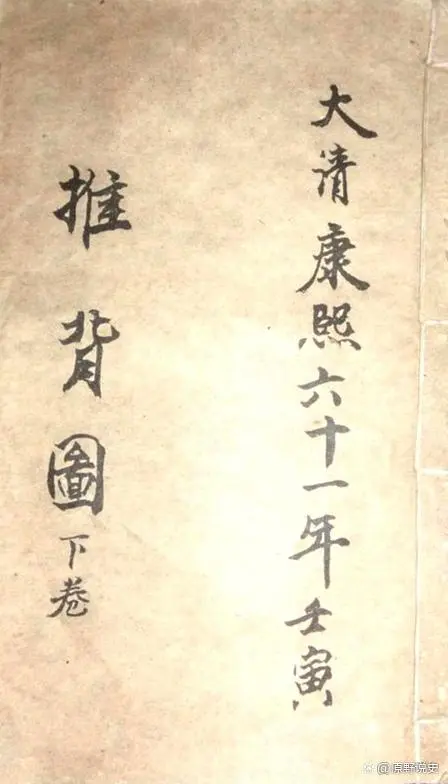 大清康熙六十一年壬寅
推背圖下卷
@原野说史